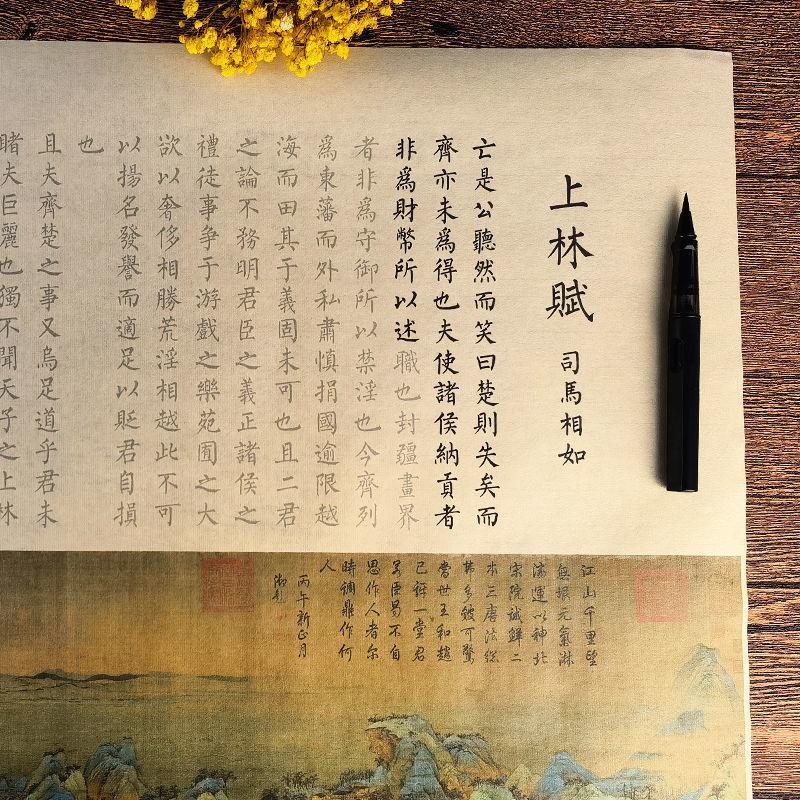 上林賦 司馬相如
亡是公聽然而笑曰楚則失矣而
齊亦未爲得也夫使諸侯納貢者
非爲財幣所以述職也封疆畫界
者非爲守御所以禁淫也今齊列
爲東藩而外私肅慎捐國逾限越
海而田其于義固未可也且二君
之論不務明君臣之義正諸侯之
禮徒事争于游戲之樂苑囿之大
欲以奢侈相勝荒淫相越此不可
以揚名發譽而適足以貶君自損
也
且夫齊楚之事又烏足道乎君未
睹夫巨麗也獨不聞天子之上林
江山千里望
無垠元氣淋
漓運以神北
宋院誠鮮二
本三唐法總
弗多皴可驚
當世王和趙
已訝一堂君
若臣曷不自
思作人者尔
時調鼎作何
人
丙午新正月
御題